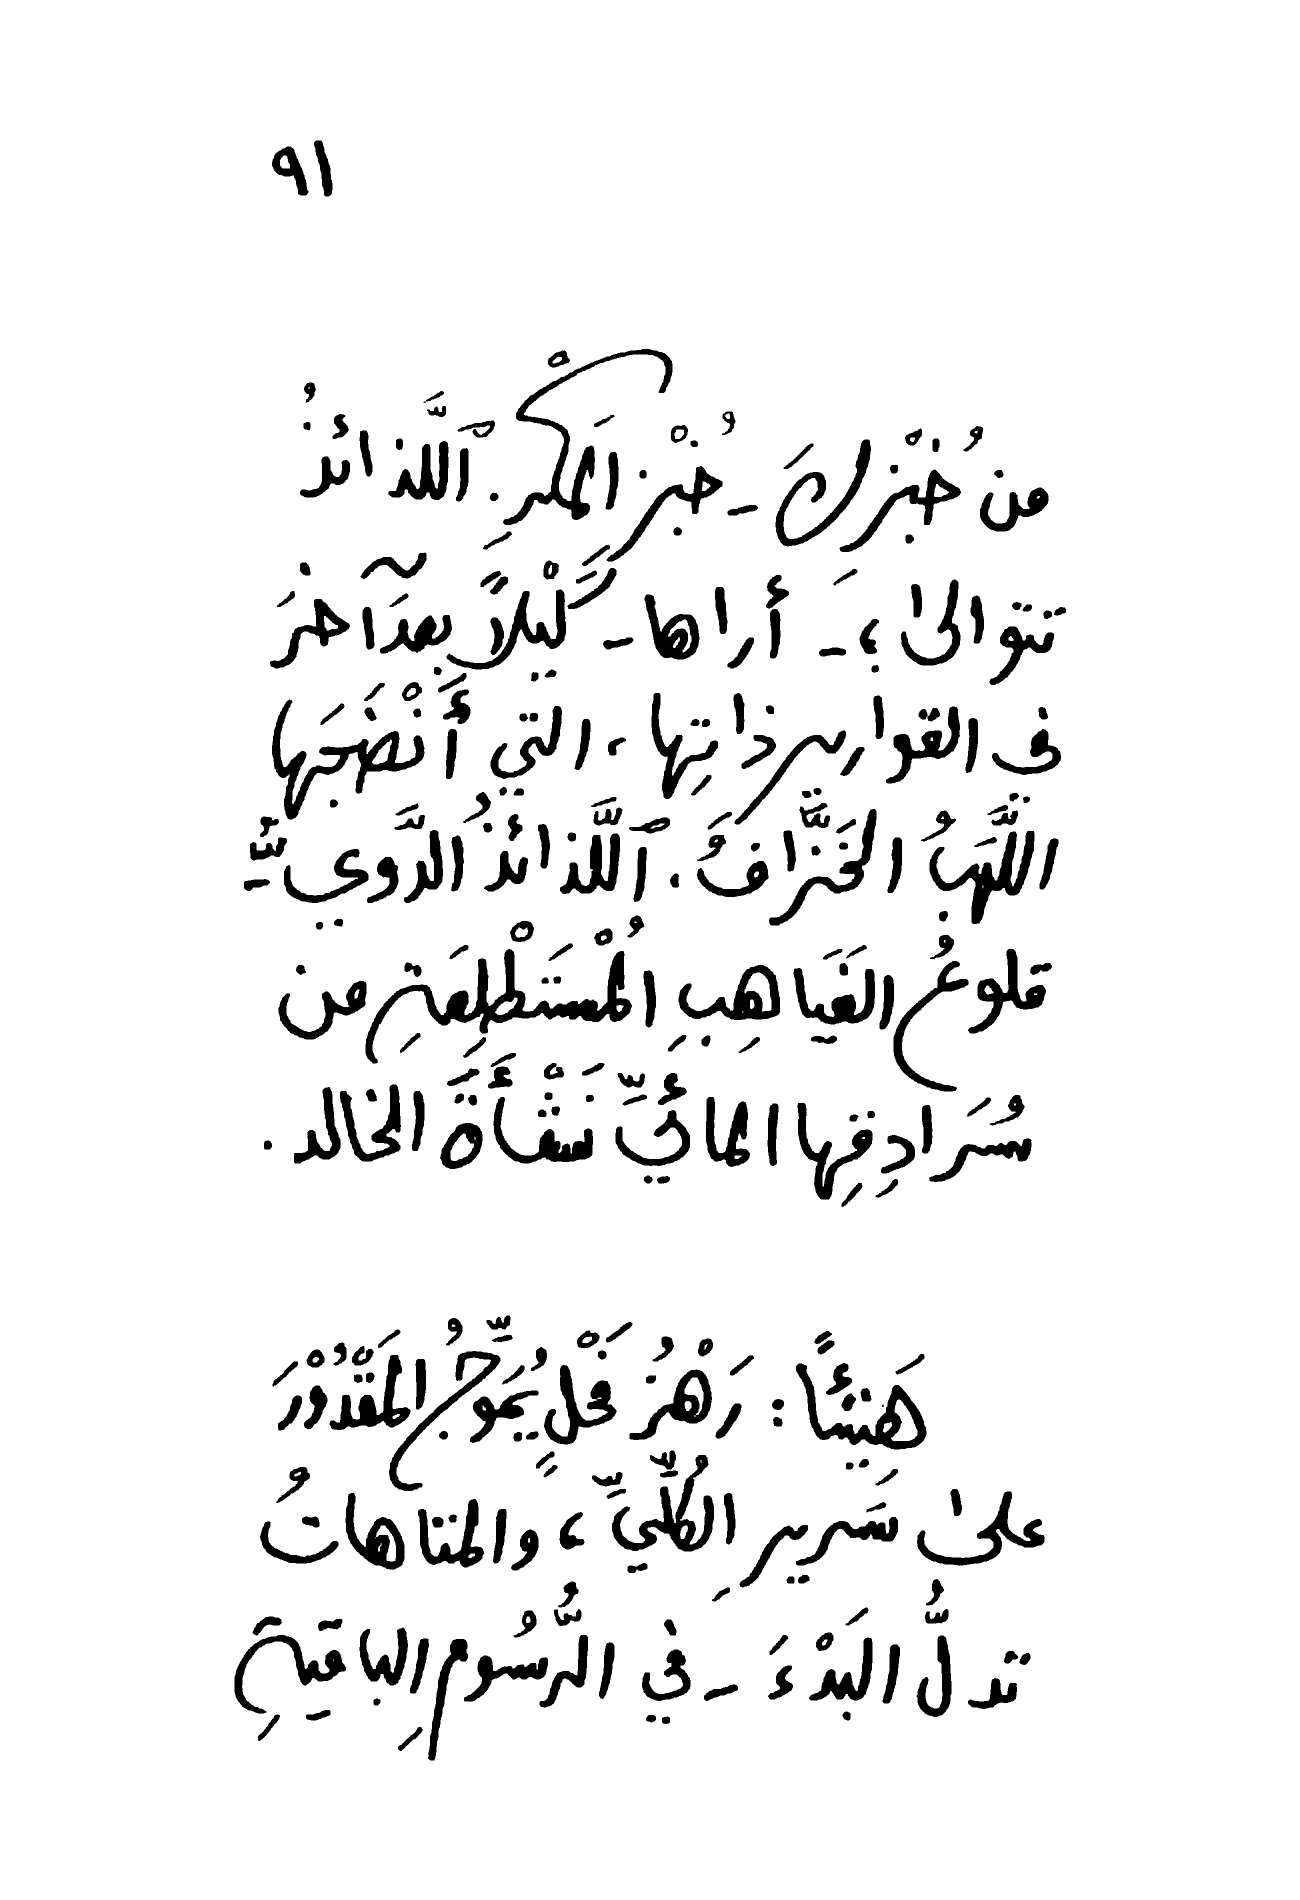 ٩١
من خُبْزِكَ ـ خُبْزِ المَكْرِ. ٱللَّذائذُ
تتوالىٰ؛ ـ أراها ـ لَيْلاً بعدَ آخرَ
في القوارير ذاتِها، التي أَنْضَجَها
اللَّهبُ الخَزَّافُ. ٱللَّذائذُ الدَّويُّ
قلوعُ الغَيَاهِبِ المُسْتَطْلِعَةِ من
سُرَادِقِها المائيِّ نَشْأَةَ الخالد.
هَنيئًا: رَهْزُ فَحْلٍ يُمَوِّجُ المَقْدُوْرَ
علىٰ سَريرِ الكُلِّيِّ، والمتاهاتُ
تدلُّ البَدْءَ ـ في الرُّسُومِ الباقيةِ